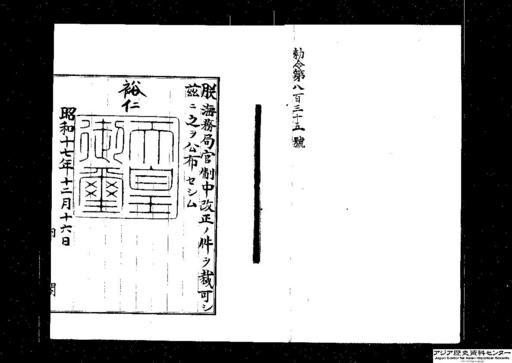 勅令第八百三十五號
朕海務局官制中改正ノ件ヲ裁可シ
茲ニ之ヲ公布セシム
裕仁
天皇御璽
昭和十七年十二月十六日
アジア歴史資料センター
Japan Center for Asian Historical Records